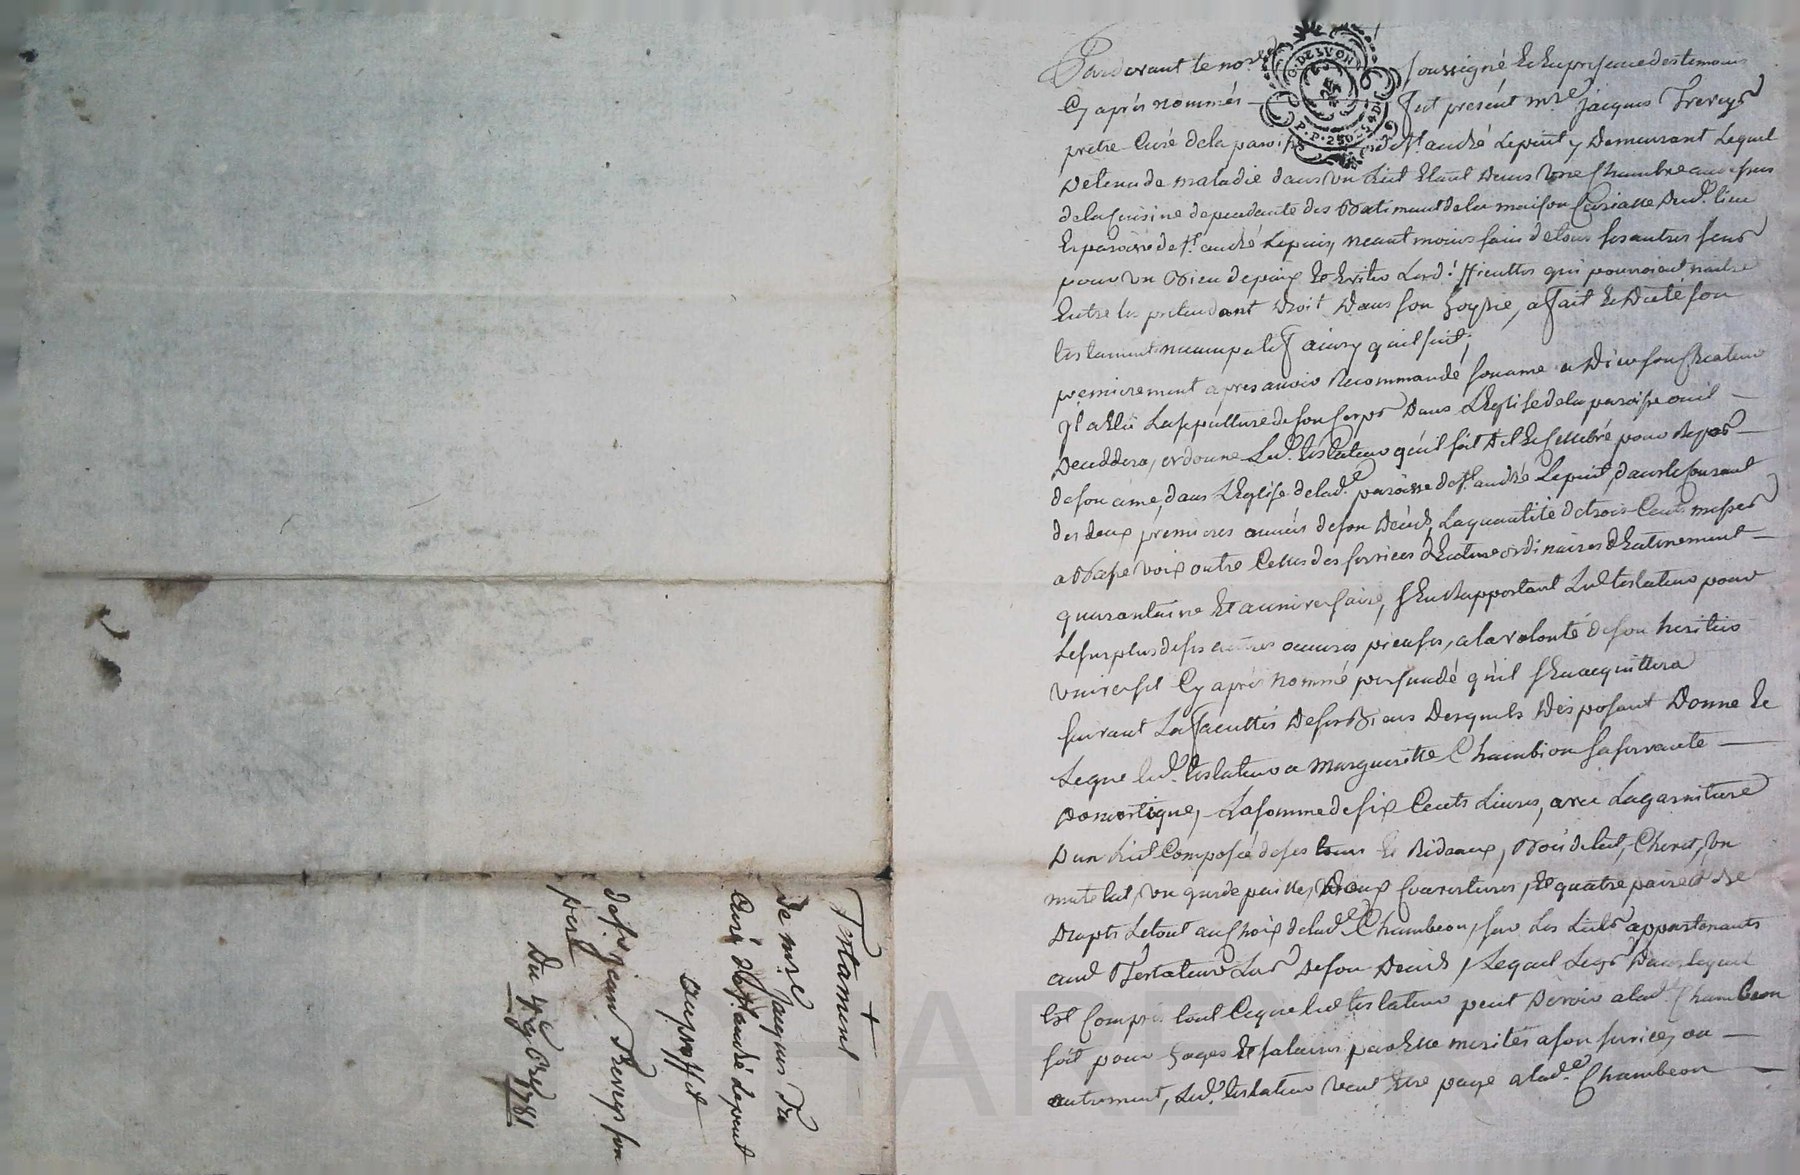 G. DE LYON
Pardevant le no.re soussigné et en presence des temoins
Cy après nommés fut présent m.re jacques Treveys
pretre Curé de la paroisse de st. andré Lepuit y Demeurant Lequel
Detenu de maladie dans un Lict Etant Dans une Chambre au dessus
de la Cuisine dependante des Batiment de la maison Curialle Dud. lieu
Et paroisse de st. andré Lepuis, neant moins sain de tous ses autres sens
pour un Bien de paix Et Eviter Les difficultés qui pourroient naitre
Entre les pretendant Droit Dans son hoyrie, a fait Et Dicté son
testament nuncupatif ainsy quil suit,
premierement apres avoir Recommandé son ame a Dieu son Createur
jl a Elû La sepulture de son Corps Dans L'Eglise de la paroisse ou il
Deceddera, ordonne Led. testateur qu'il soit dit Et Celebré pour Repos
de son ame, dans L'Eglise de lad.e paroisse de st. andré Lepuit, dans le Courant
des deux premieres années de son Décéd, La quantité de trois Cents messes
a Basse voix outre Celles des services d'Enterrement
quarantaine Et anniversaire, s'En Rapportant Led. testateur pour
Le surplus de ses autres oeuvres pieuses, a la volonté de son heritier
universel Cy après Nommé persuadé qu'il s'En acquittera
suivant Les facultés De ses Biens Desquels Disposant Donne Et
Legue led. testateur a Margueritte Chambion sa servante
Domestique, La somme de six Cents Livres, avec La garniture
D'un Lict Composée de ses tours Et Rideaux, Bois de lict, Chevet, un
matelat, un garde paille, Deux Couvertures, Et quatre paires de
Draps Le tout au Choix de lad.e Chambeon, sur Les Licts appartenants
aud. Testateur Lors De son Décéds, Lequel Legs Dans lequel
Est Compris tout Ceque led. testateur peut Devoir a lad. Chambeon
soit pour Gages Et salaires par Elle merités a son service, ou
autrement, Led. testateur veut Etre payé a lad.e Chambeon
P. P. 250-14D.
Testament
de m.re Jacques Tre
Curé de st andré lepeut
au proffit
de s.r jean Treveys son
pere
Du 4e 9bre 1781